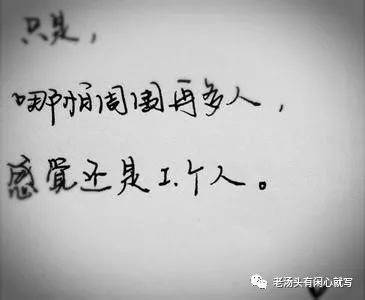 只是，
哪怕周围再多人，
感觉还是工个人。
老汤头有闲心就写